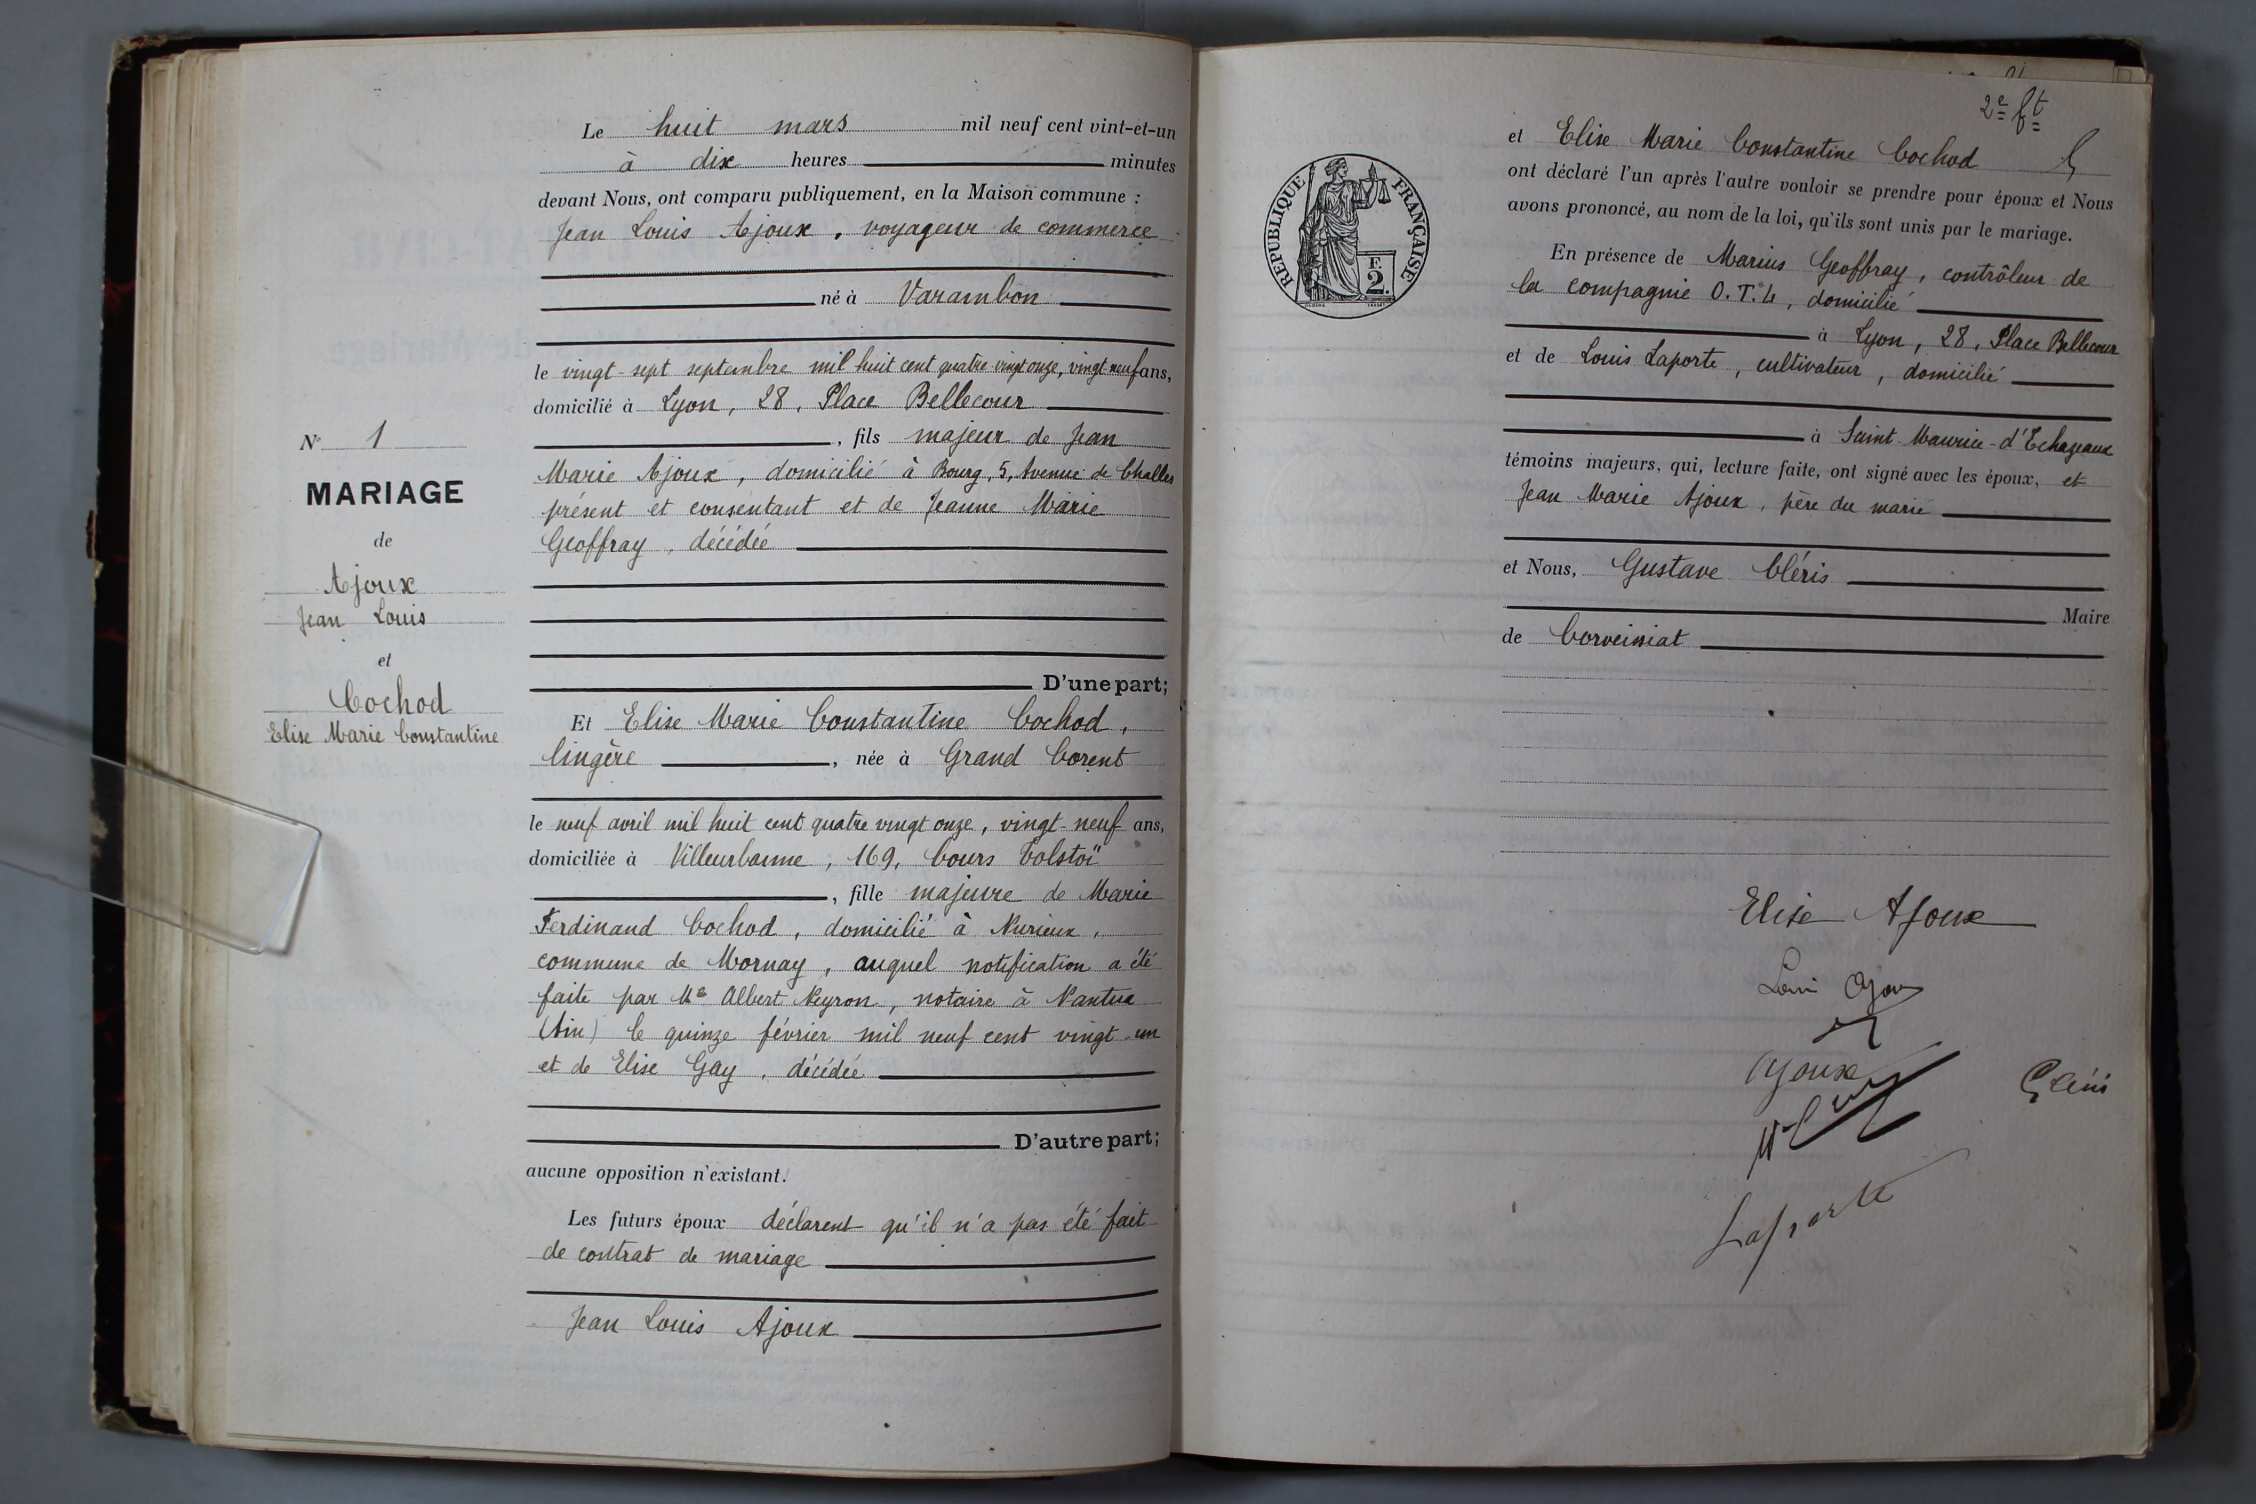 Le huit mars mil neuf cent vint-et-un
à dix heures minutes
devant Nous, ont comparu publiquement, en la Maison commune :
Jean Louis Ajoux, voyageur de commerce
né à Varambon
le vingt-sept septembre mil huit cent quatre-vingt onze, vingt-neuf ans,
domicilié à Lyon, 28, Place Bellecour
, fils majeur de Jean
Marie Ajoux, domicilié à Bourg, 5, Avenue de Challes
présent et consentant et de Jeanne Marie
Geoffray, décédée
D'une part;
Et Elise Marie Constantine Cochod,
lingère, née à Grand Corent
le neuf avril mil huit cent quatre vingt onze, vingt-neuf ans,
domiciliée à Villeurbanne, 169, Cours Tolstoï
, fille majeure de Marie
Ferdinand Cochod, domicilié à Nurieux,
commune de Mornay, auquel notification a été
faite par Me Albert Neyron, notaire à Nantua
(Ain) le quinze février mil neuf cent vingt-un
et de Elise Gay, décédée
D'autre part;
aucune opposition n'existant.
Les futurs époux déclarent qu'il n'a pas été fait
de contrat de mariage
Jean Louis Ajoux
N° 1
MARIAGE
de
Ajoux
Jean Louis
et
Cochod
Elise Marie Constantine
2e ft
RÉPUBLIQUE FRANÇAISE
F.
2.
et Elise Marie Constantine Cochod
ont déclaré l'un après l'autre vouloir se prendre pour époux et Nous
avons prononcé, au nom de la loi, qu'ils sont unis par le mariage.
En présence de Marius Geoffray, contrôleur de
la compagnie O.T.L, domicilié
à Lyon, 28, Place Bellecour
et de Louis Laporte, cultivateur, domicilié
à Saint-Maurice-d'Echazeaux
témoins majeurs, qui, lecture faite, ont signé avec les époux, et
Jean Marie Ajoux, père du marié
et Nous, Gustave Cléris
Maire
de Corveissiat
Elise Ajoux
Louis Ajoux
Ajoux
Cléris
Laporte